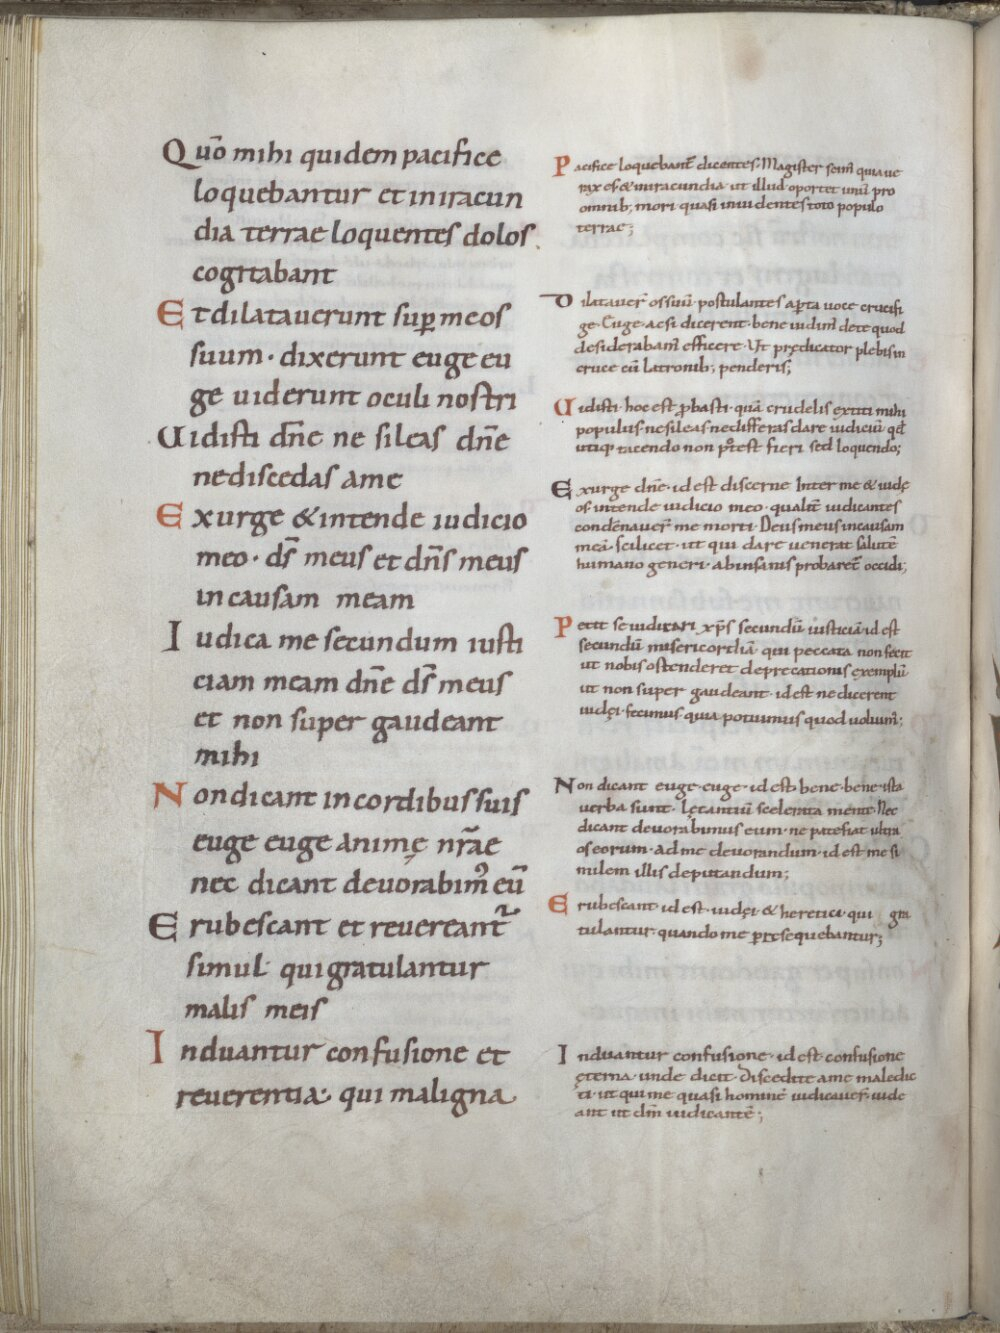 Quō mihi quidem pacifice
loquebantur et in iracun
dia terrae loquentes dolos
cogitabant
Et dilatauerunt sup̱ me os
suum· dixerunt euge eu
ge uiderunt oculi nostri
Uidisti dn̄e ne sileas dn̄e
ne discedas a me
Exurge & intende iudicio
meo· ds̄ meus et dn̄s meus
in causam meam
Iudica me secundum iusti
ciam meam dn̄e ds̄ meus
et non super gaudeant
mihi
Non dicant in cordibus suis
euge euge animę nr̄ae
nec dicant deuorabim᾽ eū
Erubescant et reuereant᷑
simul qui gratulantur
malis meis
Induantur confusione et
reuerentia· qui maligna
Pacifice loquebant᷑ dicentes· Magister scim᷑ quia ue
rax es & in iracundia ut illud oportet unū pro
omnib; mori quasi inuidentes toto populo
terrae;
Dilatauer᷑ os suū· postulantes ap̱ta uoce crucifi
ge· Euge· ac si dicerent· bene uidim᷑ de te quod
desiderabam᷑ efficere· Ut prędicator plebis in
cruce cū latronib; penderis;
Uidisti· hoc est p̱basti· quā crudelis extiti mihi
populus· ne sileas· ne differas dare iudiciū qd̄
utiq; tacendo non potest fieri sed loquendo;
Exurge dn̄e· id est discerne inter me & iudę
os intende iudicio meo· qualit᷑ iudicantes
condēnauer᷑ me morti· Deus meus in causam
meā· scilicet· ut qui dare uenerat salutē
humano generi· ab insanis probaret᷑ occidi;
Petit se iudicari xp̄s secundū iusticiā· id est
secundū misericordiā· qui peccata non fecit
ut nobis ostenderet deprecationis exemplū·
ut non super gaudeant· id est ne dicerent
iudęi· fecimus· quia potuimus quod uoluim᷑;
Non dicant euge· euge· id est· bene· bene· ista
uerba sunt· lętantiū scelerata mente· Nec
dicant deuorabimus eum· ne patefiat ultra
os eorum· Ad me deuorandum· id est me si
milem illis deputandum;
Erubescant· id est· iudęi· & heretici· qui gra
tulantur quando me p̱sequebantur;
Induantur confusione· id est confusione
ęterna· unde dicit· Discedite a me maledic
ti· ut qui me quasi hominē iudicauer᷑· uide
ant ut dm̄ iudicantē;